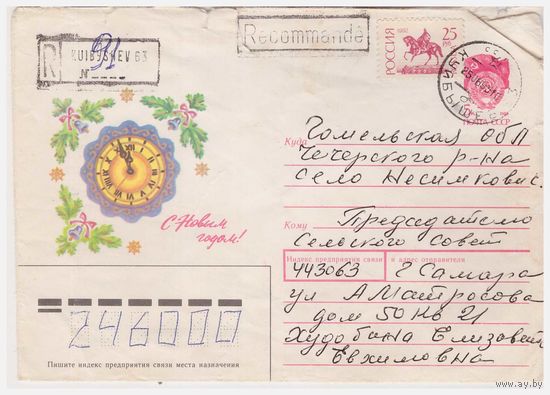 R
KUIBYSHEV 63
91
№
Recommandé
РОССИЯ
1992
25
ПОЧТА СССР
КУЙБЫШЕВ
Куда Гомельская обл
Чечерского р-на
Село Несимкович
Кому Председателю
Сельского Совет
С Новым
годом!
Индекс предприятия связи и адрес отправителя
443063 г Самара
ул А Матросова
дом 50 кв 21
Худобана Елизавет
Евхимовна
246000
Пишите индекс предприятия связи места назначения
au.by